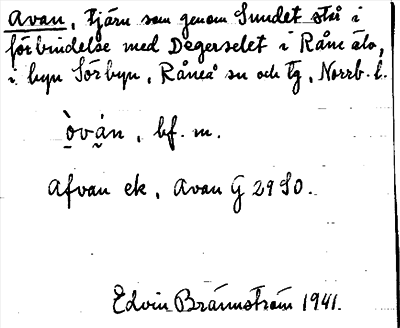 Avan, tjärn som genom Sundet står i
förbindelse med Degerselet i Råne älv,
i byn Sörbyn, Råneå sn och tg, Norrb. l.
ò̱vá̰n, bf. m.
Afvan ek, Avan G 29 SO.
Edvin Brännström 1941.